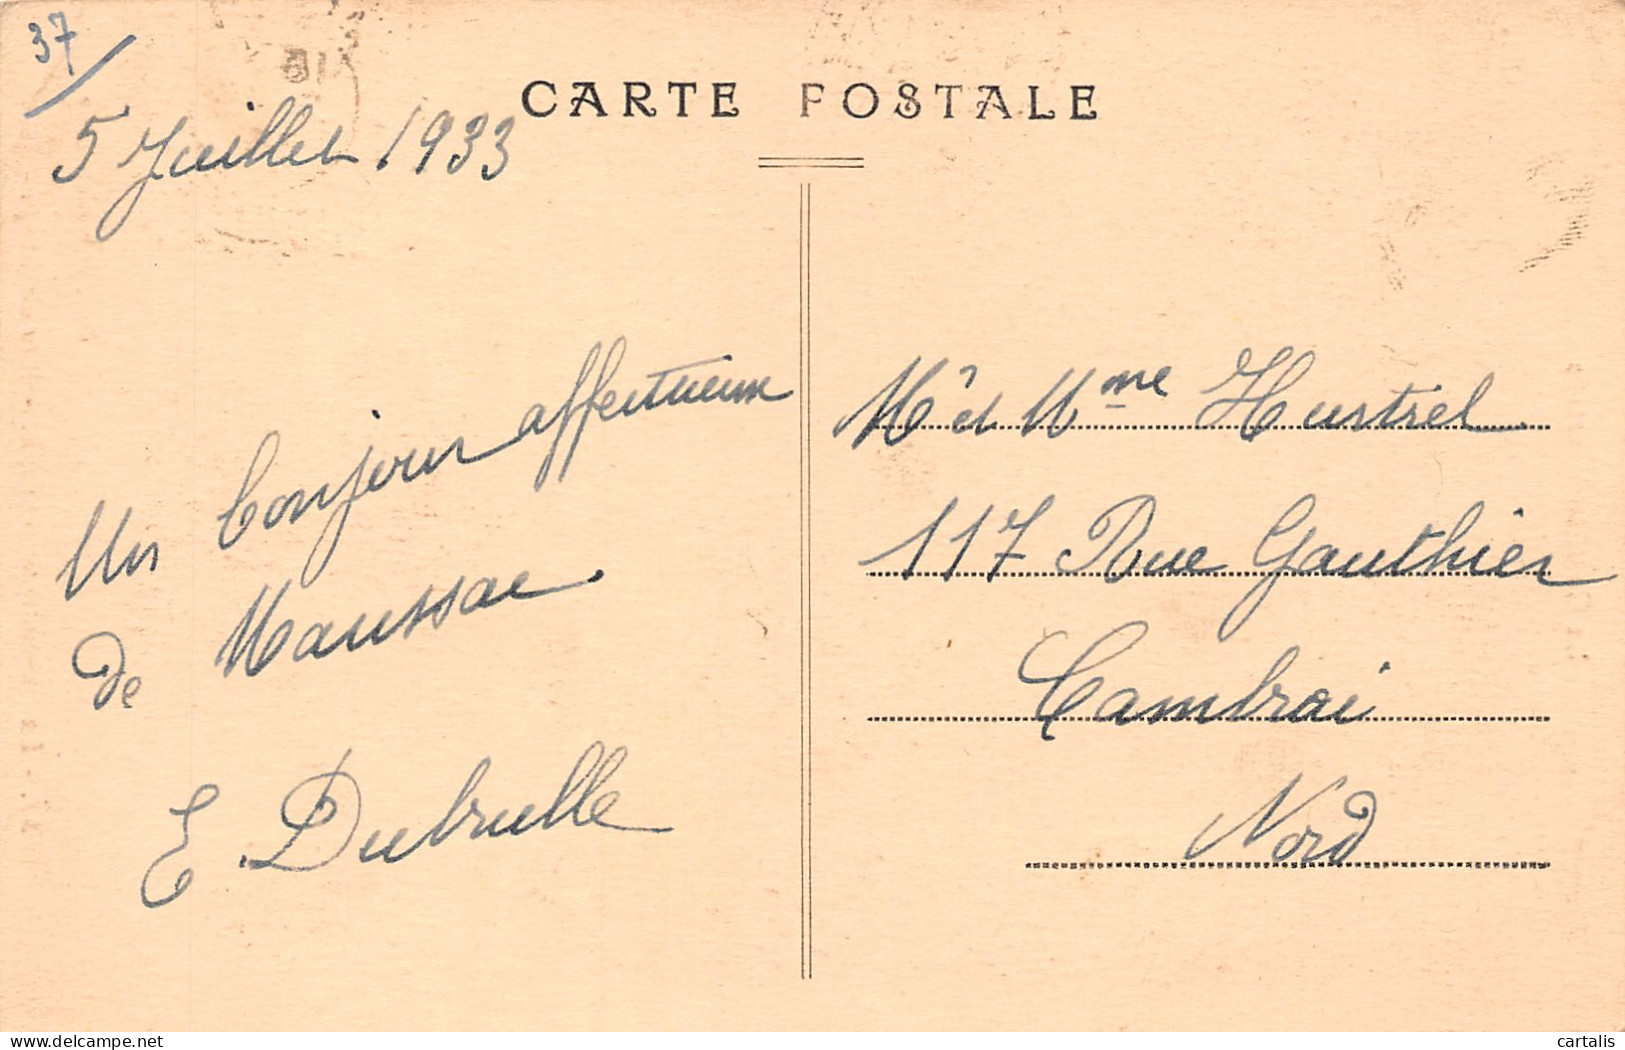 37
5 Juillet 1933
CARTE POSTALE
Un bonjour affectueux
de Maussac
E. Dubrulle
Mr et Mme Hustrel
117 Rue Gauthier
Cambrai
Nord
www.delcampe.net
cartalis